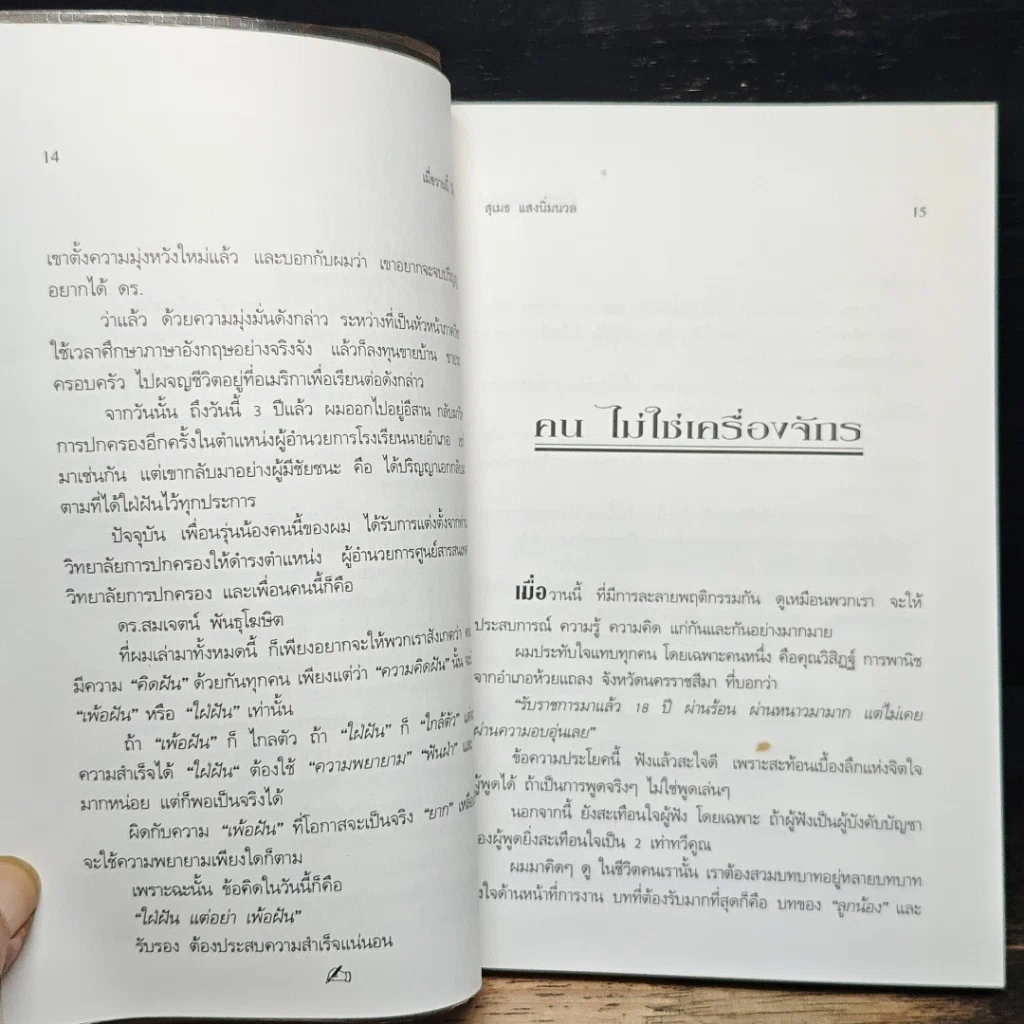 14
เมื่อวานนี้
เขาตั้งความมุ่งหวังใหม่แล้ว และบอกกับผมว่า เขาอยากจะจบปริญญา
อยากได้ ดร.
ว่าแล้ว ด้วยความมุ่งมั่นดังกล่าว ระหว่างที่เป็นหัวหน้าภาควิชา
ใช้เวลาศึกษาภาษาอังกฤษอย่างจริงจัง แล้วก็ลงทุนขายบ้าน
ครอบครัว ไปผจญชีวิตอยู่ที่อเมริกาเพื่อเรียนต่อดังกล่าว
จากวันนั้น ถึงวันนี้ 3 ปีแล้ว ผมออกไปอยู่อีสาน กลับมา
การปกครองอีกครั้งในตำแหน่งผู้อำนวยการโรงเรียนนายอำเภอ
มาเช่นกัน แต่เขากลับมาอย่างผู้มีชัยชนะ คือ ได้ปริญญาเอก
ตามที่ได้ใฝ่ฝันไว้ทุกประการ
ปัจจุบัน เพื่อนรุ่นน้องคนนี้ของผม ได้รับการแต่งตั้งจาก
วิทยาลัยการปกครองให้ดำรงตำแหน่ง ผู้อำนวยการศูนย์สารสนเทศ
วิทยาลัยการปกครอง และเพื่อนคนนี้ก็คือ
ดร.สมเจตน์ พันธุโฆษิต
ที่ผมเล่ามาทั้งหมดนี้ ก็เพียงอยากจะให้พวกเราสังเกตว่า คน
มีความ “คิดฝัน” ด้วยกันทุกคน เพียงแต่ว่า “ความคิดฝัน” นั้น จะ
“เพ้อฝัน” หรือ “ใฝ่ฝัน” เท่านั้น
ถ้า “เพ้อฝัน” ก็ ไกลตัว ถ้า “ใฝ่ฝัน” ก็ “ใกล้ตัว”
ความสำเร็จได้ “ใฝ่ฝัน“ ต้องใช้ “ความพยายาม” “ฟันฝ่า” และ
มากหน่อย แต่ก็พอเป็นจริงได้
ผิดกับความ “เพ้อฝัน” ที่โอกาสจะเป็นจริง “ยาก”
จะใช้ความพยายามเพียงใดก็ตาม
เพราะฉะนั้น ข้อคิดในวันนี้ก็คือ
“ใฝ่ฝัน แต่อย่า เพ้อฝัน”
รับรอง ต้องประสบความสำเร็จแน่นอน
สุเมธ แสงนิ่มนวล
15
คน ไม่ใช่เครื่องจักร
เมื่อวานนี้ ที่มีการละลายพฤติกรรมกัน ดูเหมือนพวกเรา จะให้
ประสบการณ์ ความรู้ ความคิด แก่กันและกันอย่างมากมาย
ผมประทับใจแทบทุกคน โดยเฉพาะคนหนึ่ง คือคุณวิสิฏฐ์ การพานิช
จากอำเภอห้วยแถลง จังหวัดนครราชสีมา ที่บอกว่า
“รับราชการมาแล้ว 18 ปี ผ่านร้อน ผ่านหนาวมามาก แต่ไม่เคย
ผ่านความอบอุ่นเลย”
ข้อความประโยคนี้ ฟังแล้วสะใจดี เพราะสะท้อนเบื้องลึกแห่งจิตใจ
ผู้พูดได้ ถ้าเป็นการพูดจริงๆ ไม่ใช่พูดเล่นๆ
นอกจากนี้ ยังสะเทือนใจผู้ฟัง โดยเฉพาะ ถ้าผู้ฟังเป็นผู้บังคับบัญชา
องผู้พูดยิ่งสะเทือนใจเป็น 2 เท่าทวีคูณ
ผมมาคิดๆ ดู ในชีวิตคนเรานั้น เราต้องสวมบทบาทอยู่หลายบทบาท
งใจด้านหน้าที่การงาน บทที่ต้องรับมากที่สุดก็คือ บทของ “ลูกน้อง” และ